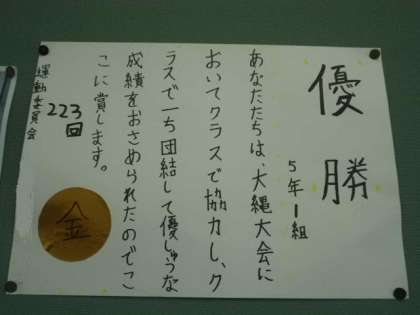 優勝
5年1組
あなたたちは、大縄大会に
おいてクラスで協力し、ク
ラスで一ち団結して優しゅうな
成績をおさめられたのでこ
こに賞します。
223回
運動委員会
金